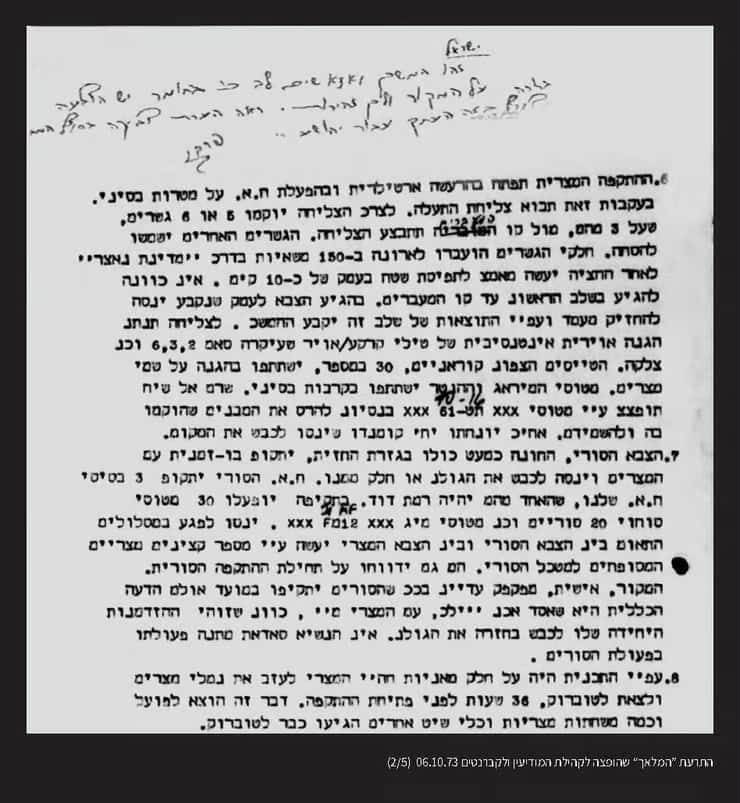 ישראל
6.ההתקפה המצרית תפתח בהרעשה ארטילרית ובהפעלת ח.א. על מטרות בסיני.
בעקבות זאת תבוא צליחת התעלה. לצרכ הצליחה יוקמו 5 או 6 גשרים,
שעל 3 מהם, מול קו תתבצע הצליחה. הגשרים האחרים ישמשו
להסחה. חלקי הגשרים הועברו לארונה ב-150 משאיות בדרכ ״מדינת נאצר״
לאחר החציה יעשה מאמצ לתפיסת שטח בעמק של כ-10 קימ . אינ כוונה
להגיע בשלב הראשונ עד קו המעברים. בהגיע הצבא לעמק שנקבע ינסה
להחזיק מעמד ועפ״י התוצאות של שלב זה יקבע ההמשכ . לצליחה תנתנ
הגנה אוירית אינטנסיבית של טילי קרקע/אויר שעיקרה סאמ 6,3,2 וכנ
צלקה. הטייסים הצפונ קוראניים, 30 במספר, ישתתפו בהגנה על שמי
מצרים. מטוסי המיראג וההנטר ישתתפו בקרבות בסיני. שרמ אל שיח
תופצצ ע״י מטוסי xxx תט-16 xxx בנסיונ להרס את המבנים שהוקמו
בה ולהשמידם. אח״כ יונחתו יח׳ קומנדו שינסו לכבש את המקום.
7.הצבא הסורי, החונה כמעט כולו בגזרת החזית, יתקופ בו-זמנית עם
המצרים וינסה לכבש את הגולנ או חלק ממנו. ח.א. הסורי יתקופ 3 בסיסי
ח.א. שלנו, שהאחד מהמ יהיה רמת דוד. בתקיפה יופעלו 30 מטוסי
סוחוי 20 סוריים וכנ מטוסי מיג xxx Fm12 xxx . ינסו לפגע במסלולים
התאום בינ הצבא הסורי ובינ הצבא המצרי יעשה ע״י מספר קצינים מצריים
המסופחים למטכל הסורי. הם גם ידווחו על תחילת ההתקפה הסורית.
המקור, אישית, מפקפק עדיינ בככ שהסורים יתקיפו במועד אולם הדעה
הכללית היא שאסד אכנ ״ילכ, עם המצרי מ״ , כוונ שזוהי ההזדמנות
היחידה שלו לכבש בחזרה את הגולנ. אינ הנשיא סאדאת מתנה פעולתו
בפעולת הסורים .
8.עפ״י התכנית היה על חלק מאניות חה״י המצרי לעזב את נמלי מצרים
ולצאת לטוברוק, 36 שעות לפני פתיחת ההתקפה. דבר זה הוצא לפועל
וכמה משחתות מצריות וכלי שיט אחרים הגיעו כבר לטוברוק.
התרעת ״המלאך״ שהופצה לקהילת המודיעין ולקברניטים 06.10.73 (2/5)